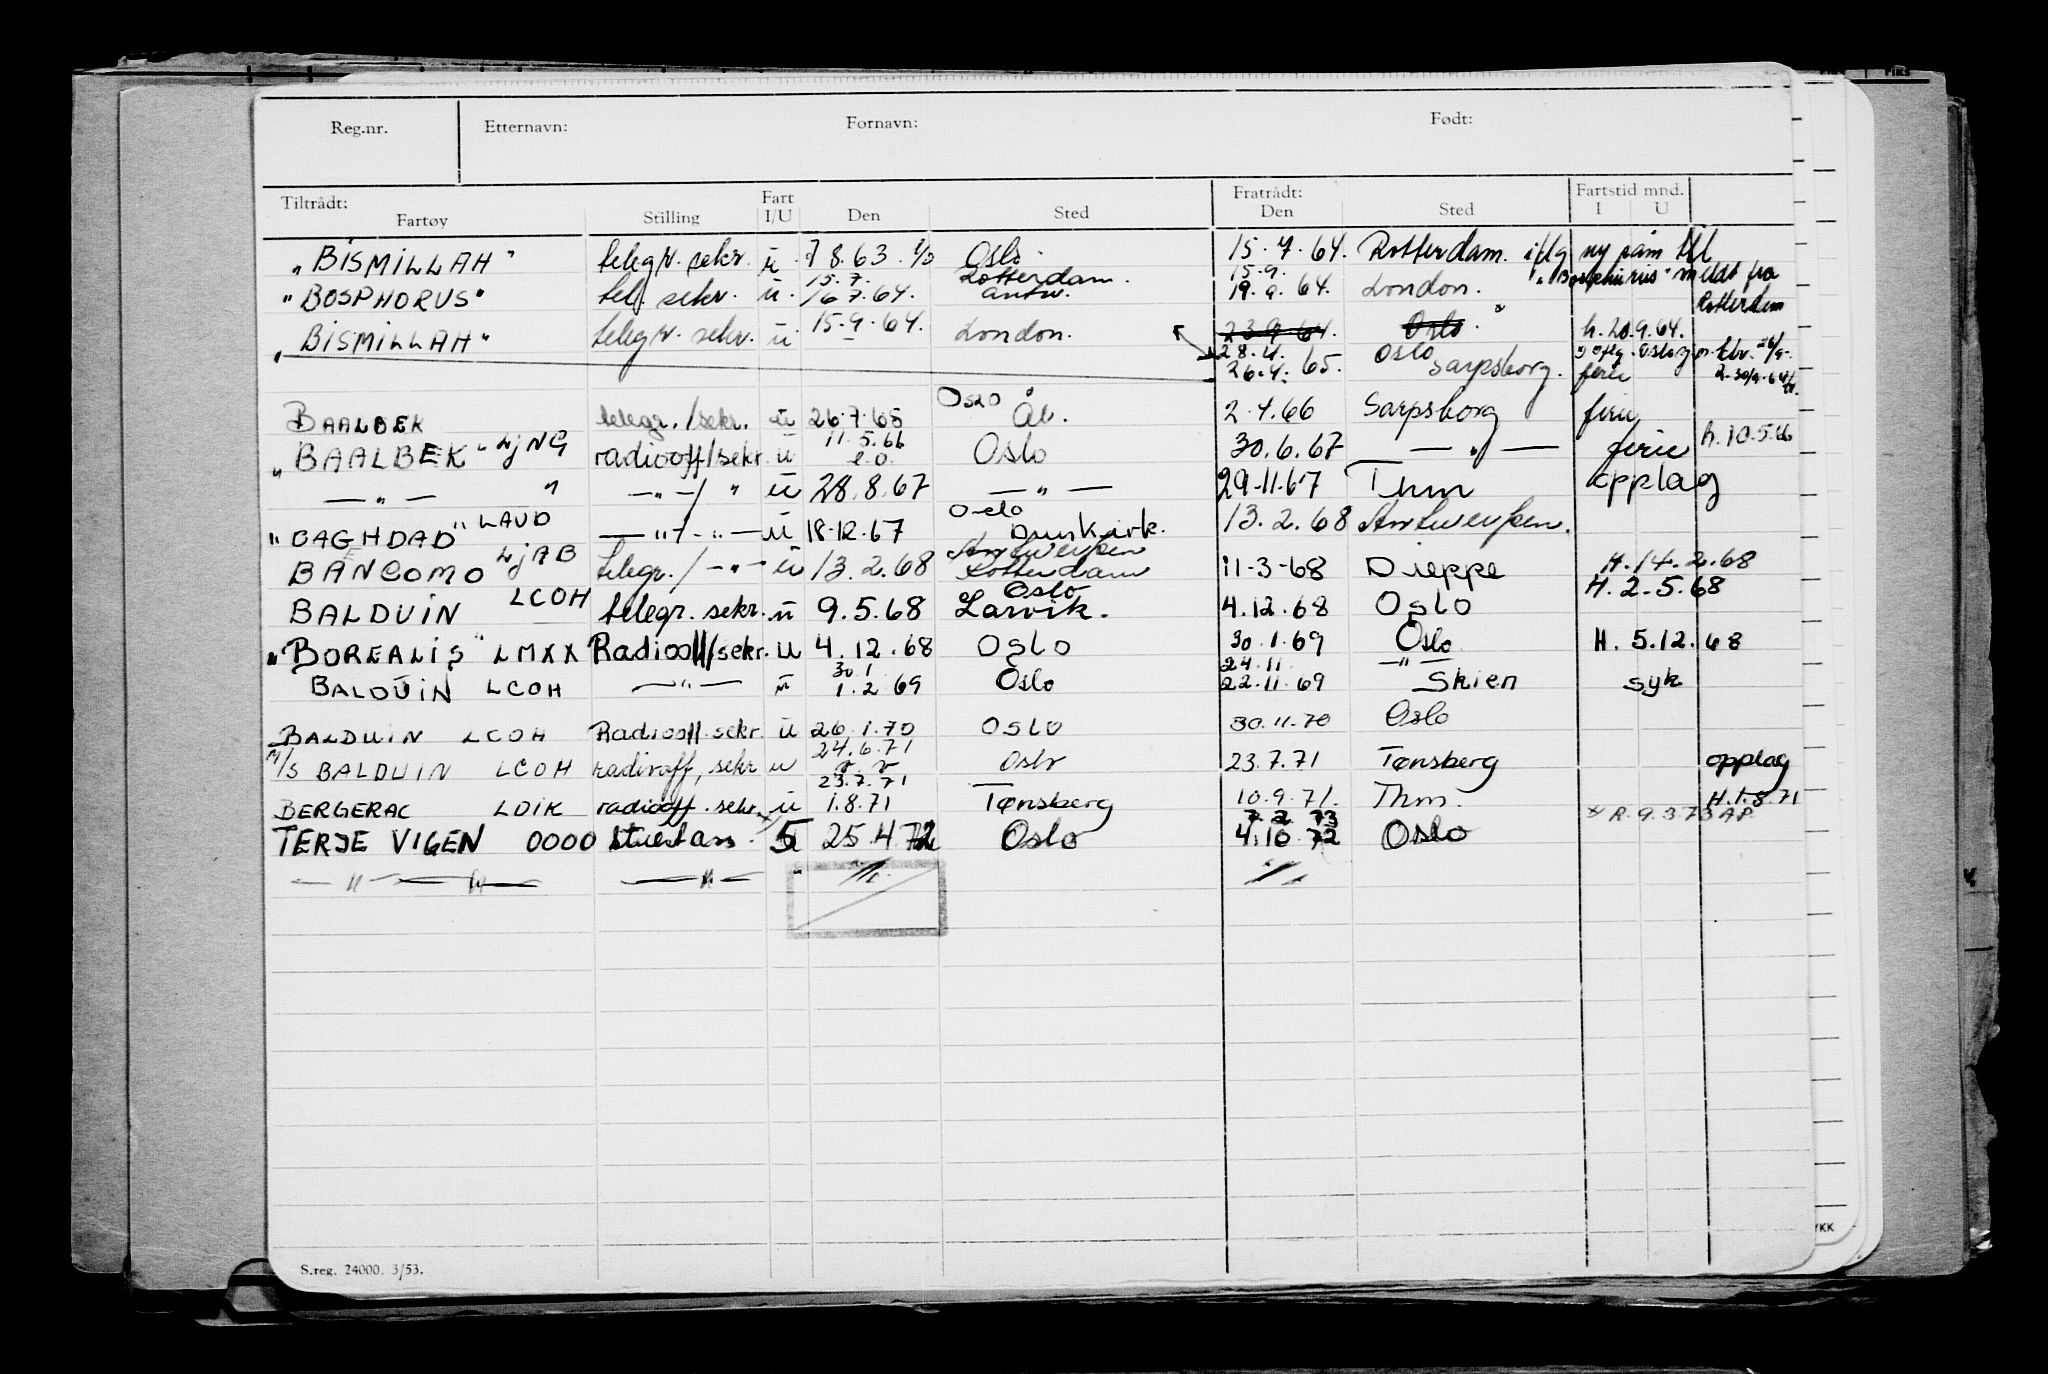 Reg.nr. Etternavn: Fornavn: Født:
Tiltrådt: Fart Fratrådt: Fartstid mnd.
Fartøy Stilling I/U Den Sted Den Sted I U
"BISMILLAH" telegr. sekr. u. 7 8.63. Oslo. 15.7.64. Rotterdam. iflg ny påm til
15.7. Rotterdam. 15.9. "Bosphurus" meldt fra
"BOSPHORUS" tel. sekr. u. 16 7.64. antw. 19.9.64. London. Rotterdam
"BISMILLAH" telegr. sekr. u 15.9.64. London. 23.9.64. Oslo. h. 20.9.64.
28.4. Oslo
26.4.65. Sarpsborg. ferie
BAALBEK telegr./sekr. u 26.7.65 Oslo Åb. 2.4.66 Sarpsborg ferie
"BAALBEK" LJNG radiooff/sekr u 11.5.66 Oslo 30.6.67 — " — ferie h. 10.5.66
— " — " — " —/ " u 28.8.67 — " — 29.11.67 Thm opplag
"BAGHDAD" LAUD — " — — " — u 18.12.67 Oslo Dunkirk. 13.2.68 Antwerpen.
BANCOMO LJAB telegr./ — " — u 13.2.68 Antwerpen Rotterdam 11-3-68 Dieppe H. 14.2.68
BALDUIN LCOH telegr. sekr. u 9.5.68 Oslo Larvik. 4.12.68 Oslo H. 2.5.68
"BOREALIS" LMXX Radiooff/sekr. u 4.12.68 Oslo 30.1.69 Oslo H. 5.12.68
30.1 24.11. — " —
BALDUIN LCOH — " — u 1.2 69 Oslo 22.11.69 Skien syk
BALDUIN LCOH Radiooff. sekr. u 26.1.70 Oslo 30.11.70 Oslo
24.6.71
M/S BALDUIN LCOH radiooff, sekr u Oslo 23.7.71 Tønsberg opplag
23.7.71
BERGERAC LDIK radiooff. sekr. u 1.8.71 Tønsberg 10.9.71. Thm. H. 1.8.71
7 2 73 R. 9.3.73 AP
TERJE VIGEN OOOO stuertass. 25.4.72 Oslo 4.10.72 Oslo
— " — " — — " — "
S.reg. 24000. 3/53.